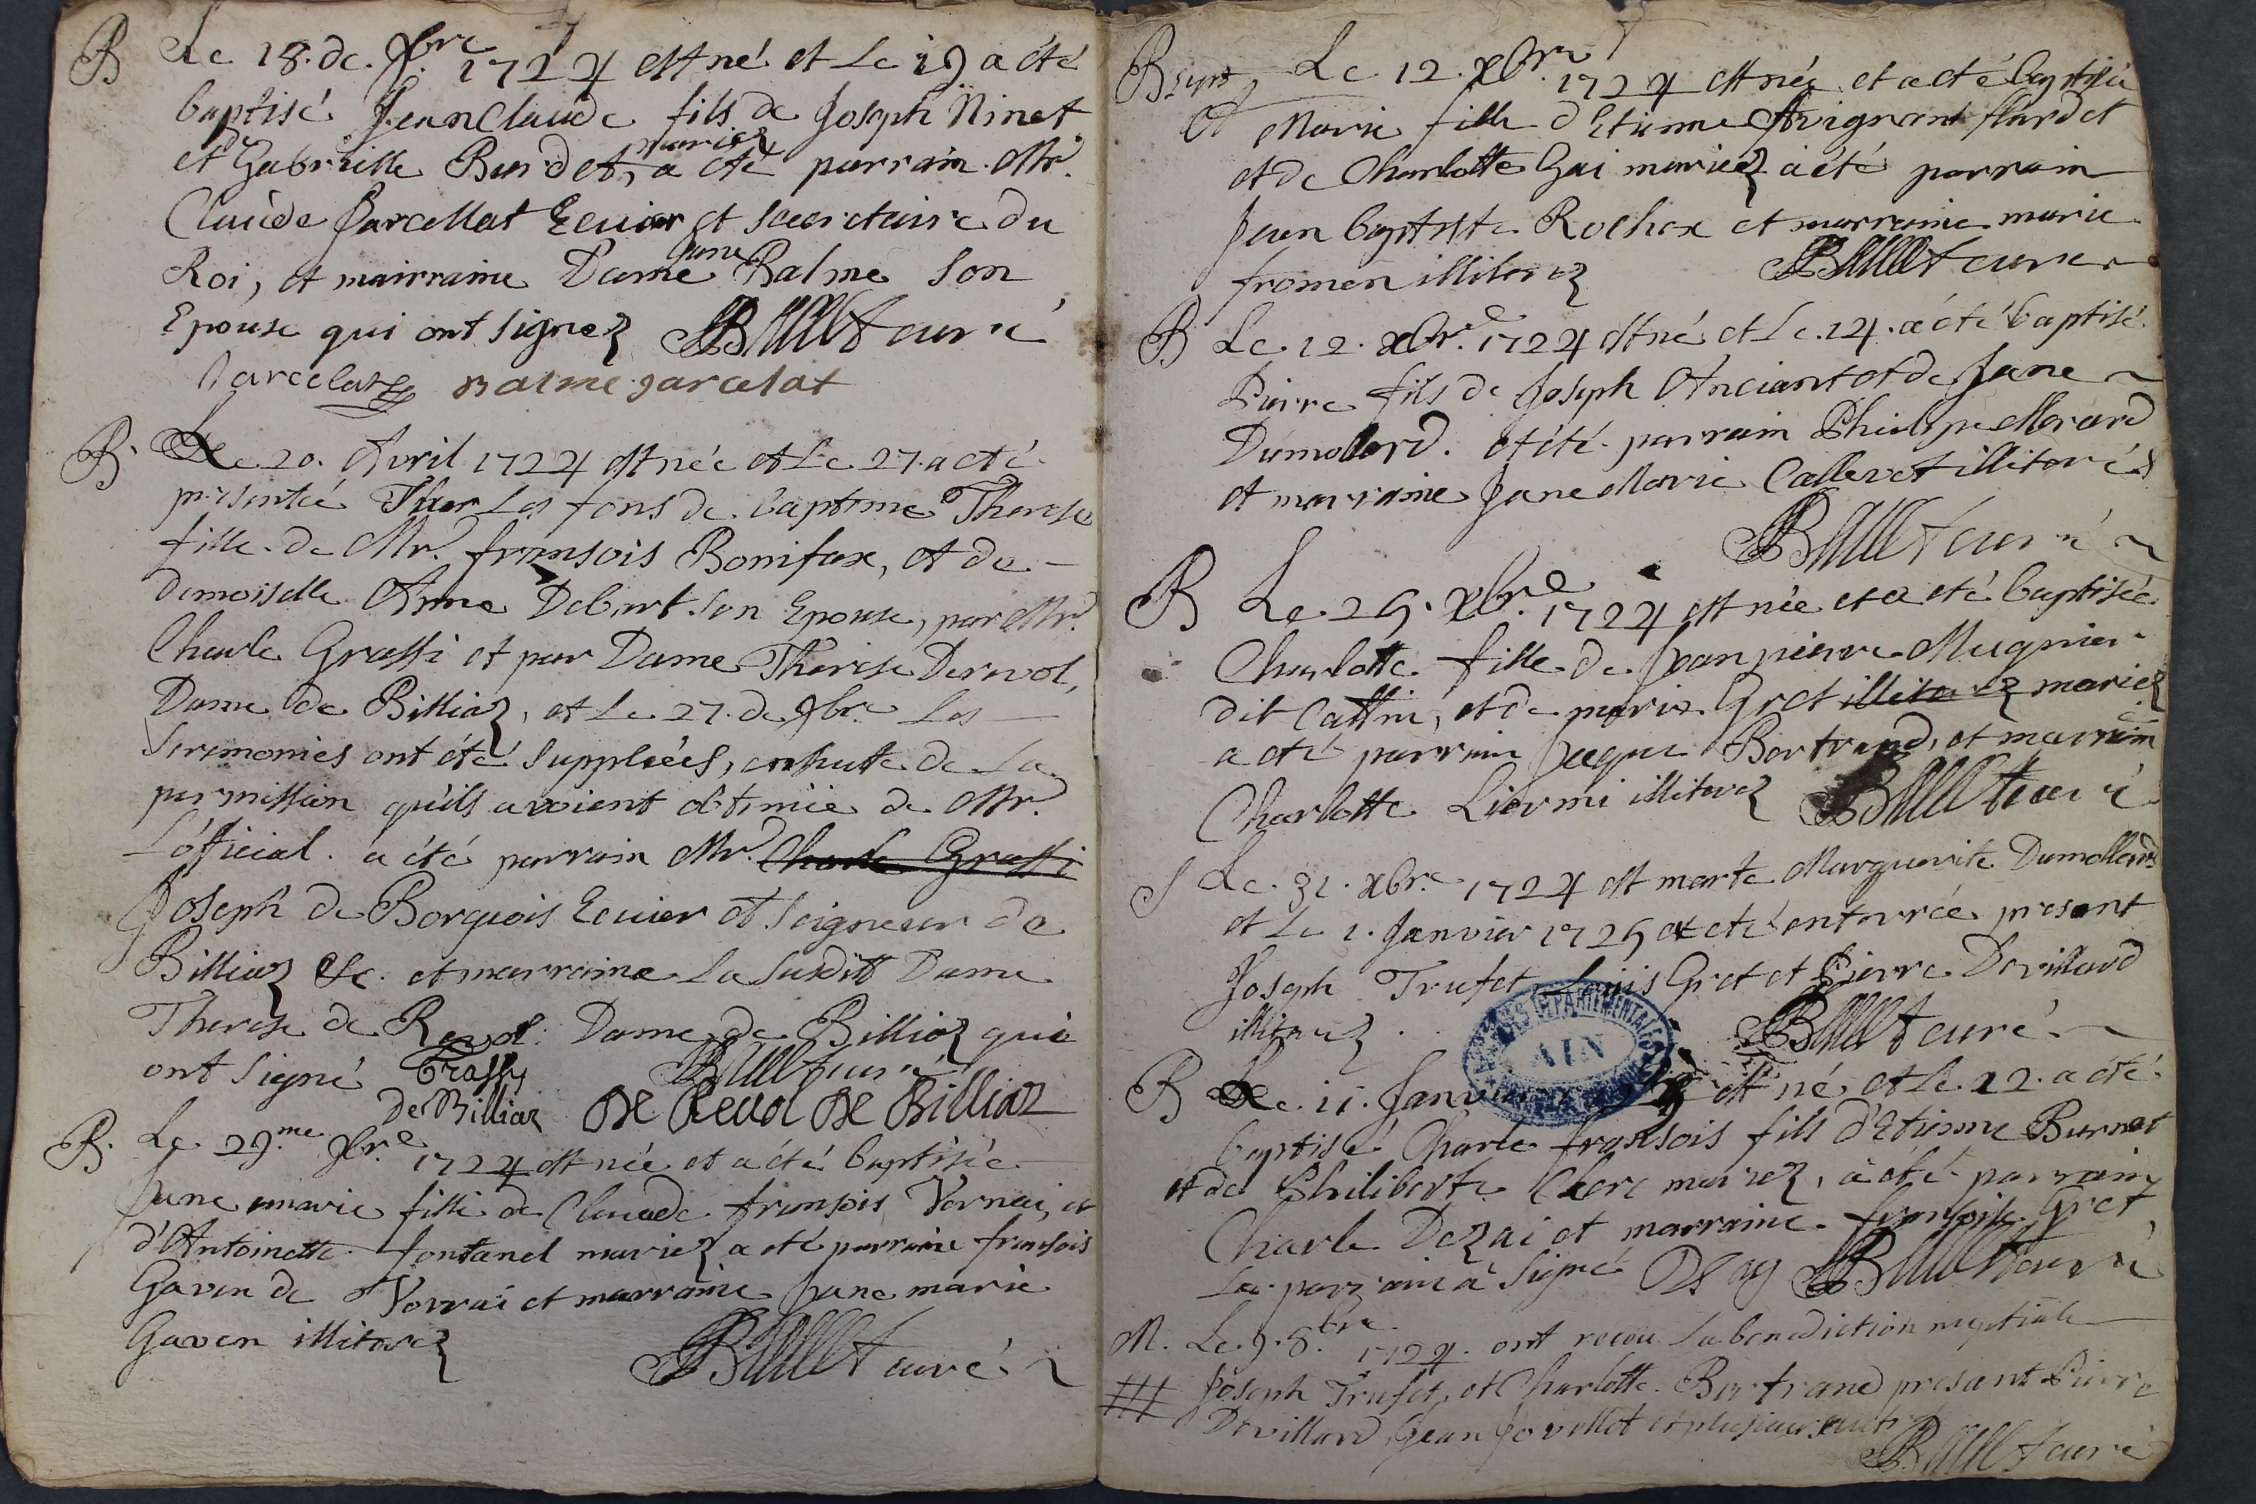 B Le 18. de 9bre 1724 est né et Le 19 a été
baptisé Jean Claude fils de Joseph Ninet
et Gabrielle Burdet, mariez a été parrain Mr.
Claude Jarcellat Ecuier et secretaire du
Roi, et mairraine Dame Jane Balme Son
Epouse qui ont signez B curé
Jarcelat Balme jarcelat
B. Le 20. Avril 1724 est née et Le 27. a été
presentée Sur Les fons de baptême Therese
fille de Mr. fransois Bonifax, et de
demoiselle Anne Debart son Epouse, par Mr.
Charle Grassi et par Dame Therese Derevol,
Dame de Billiaz, et Le 27. de 9bre Les
Seremonies ont été Suppleées, ensuite de La
permission qu'ils avoient obtenüe de Mr.
L'official. a été parrain Mr. Charle Grassi
Joseph de Borquois Ecuier et Seigneur de
Billiaz &c. et marraine La Susditt Dame
Therese de Revol. Dame de Billiaz qui
ont signé Grassy B curé
De Billiaz De Revol De Billiaz
B. Le 29.me 9bre 1724 est née et a été baptisée
Jane marie fille de Claude fransois Vernai, et
d'Antoinette fontanel mariez a été parrain fransois
Gaven de Verrai et marraine Jane marie
Gaven illiterez B curé
B Le 12. Xbre 1724 est née et a été baptisée
Marie fille d'Etienne Avignant
et de Charlotte Gai mariez a été parrain
Jean baptiste Rochex et marraine marie
fromen illiterez B curé
B Le 12. Xbre 1724 est né et Le 14. a été baptisé
Pierre fils de Joseph Anciant et de Jane
Dumollard. a été parrain Philipe Morard
et marraine Jane Marie Callevet illiterés
B curé
B Le 25. Xbre 1724 est née et a été baptisée
Charlotte fille de Jean pierre Mugnier
dit Cattin, et de marie Gret illiterez mariez
a été parrain Jaque Bertrand, et marraine
Charlotte Liermi illiterez B curé
S Le. 31. Xbre 1724 est morte Marguerite Dumollard
et Le 1. Janvier 1725 a été enterrée present
Joseph Trufet, Louis Gret et Pierre Devillard
illiterez. B curé
ARCHIVES DEPARTEMENTALES
AIN
B Le. 11. Janvier est né et Le 12. a été
baptisé Charle fransois fils d'Etienne Burnet
et de Philiberte Clerc mariez, a été parrain
Charle Dezai et marraine fransoise Gret
Le parrain a signé B curé
M. Le. 9. 8.bre 1724. ont recou La benediction nuptiale
Joseph Trufet, et Charlotte Bertrand present Pierre
Devillard, Jean Jovellet et plusieurs autres
B curé